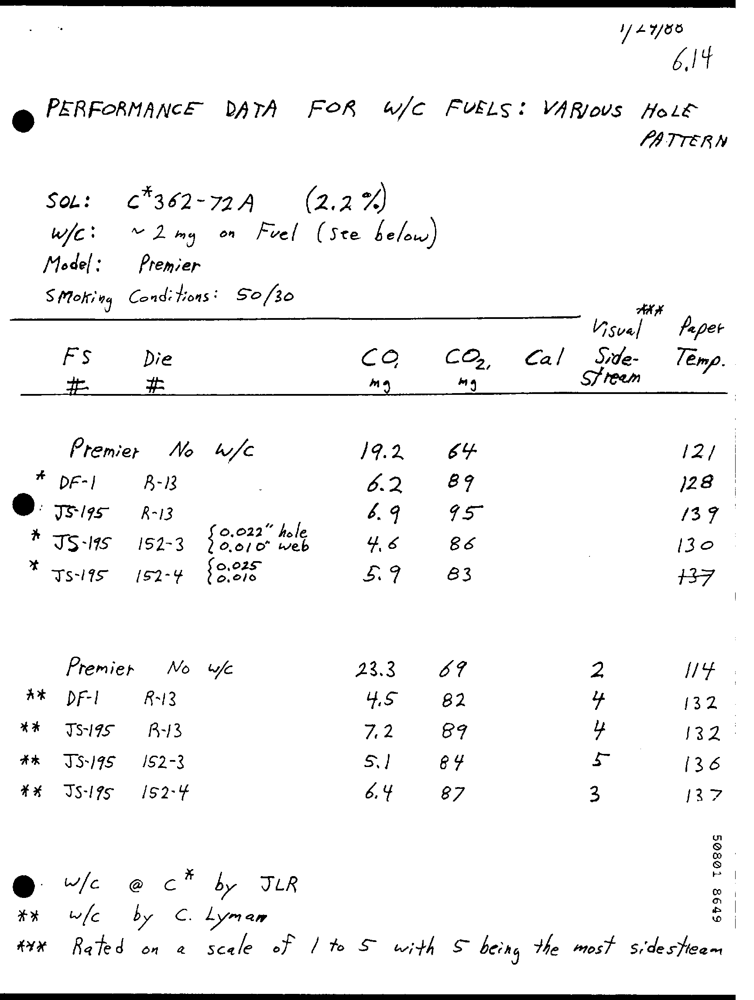 6.14
PERFORMANCE DATA FOR W/C FUELS: VARIOUS HOLE
PATTERN
SOL: C*362-72A (2.2%)
W/C: ~ 2 mg on Fuel (see below)
Model: Premier
Smoking Conditions: 50/30
FS # Die # CO, mg CO2, mg Cal Visual Side-stream *** Paper Temp.
Premier No W/C 19.2 64 121
* DF-1 R-13 6.2 89 128
JS-195 R-13 6.9 95 139
* JS-195 152-3 {0.022" hole 0.010" web 4.6 86 130
* JS-195 152-4 {0.025 0.010 5.9 83 137
Premier No w/c 23.3 69 2 114
** DF-1 R-13 4.5 82 4 132
** JS-195 R-13 7.2 89 4 132
** JS-195 152-3 5.1 84 5 136
** JS-195 152-4 6.4 87 3 137
w/c @ C* by JLR
** w/c by C. Lyman
*** Rated on a scale of 1 to 5 with 5 being the most sidestream
50801 8649